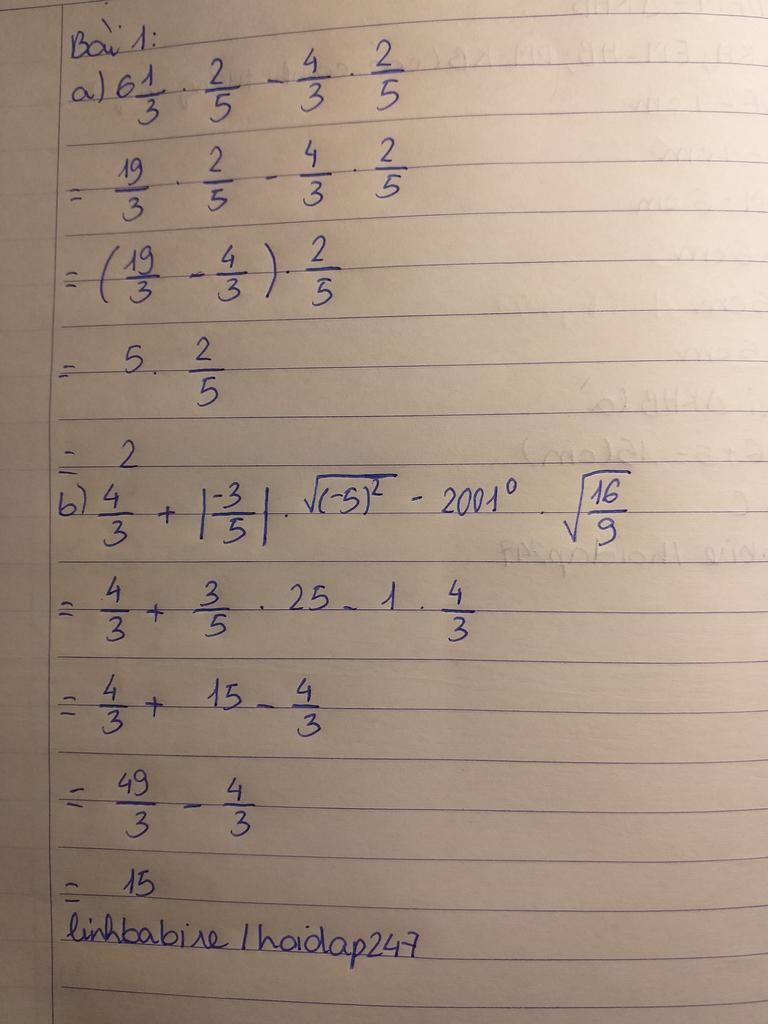 Bài 1:
a) 6 1/3 . 2/5 - 4/3 . 2/5
= 19/3 . 2/5 - 4/3 . 2/5
= (19/3 - 4/3) . 2/5
= 5 . 2/5
= 2
b) 4/3 + |-3/5| . √(-5)² - 2001⁰ . √16/9
= 4/3 + 3/5 . 25 - 1 . 4/3
= 4/3 + 15 - 4/3
= 49/3 - 4/3
= 15
linhbabire / hoidap247